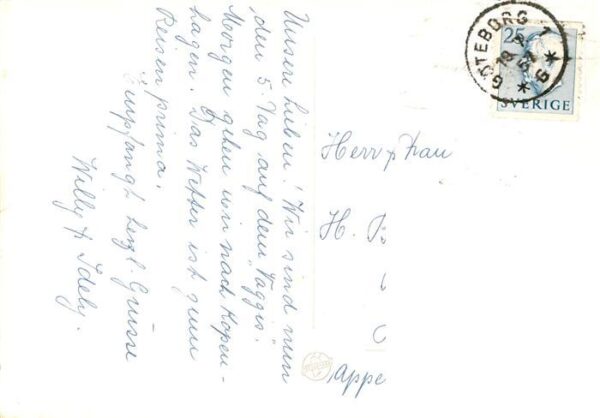 Unsere Lieben! Wir sind nun
den 5. Tag auf dem „Vaggis".
Morgen gehen wir nach Kopen-
hagen. Das Wetter ist zum
Reisen prima.
Empfangt herzl. Grüsse
Willy & Idely.
Herr & Frau
H.
Appe
GÖTEBORG 1
25
SVERIGE